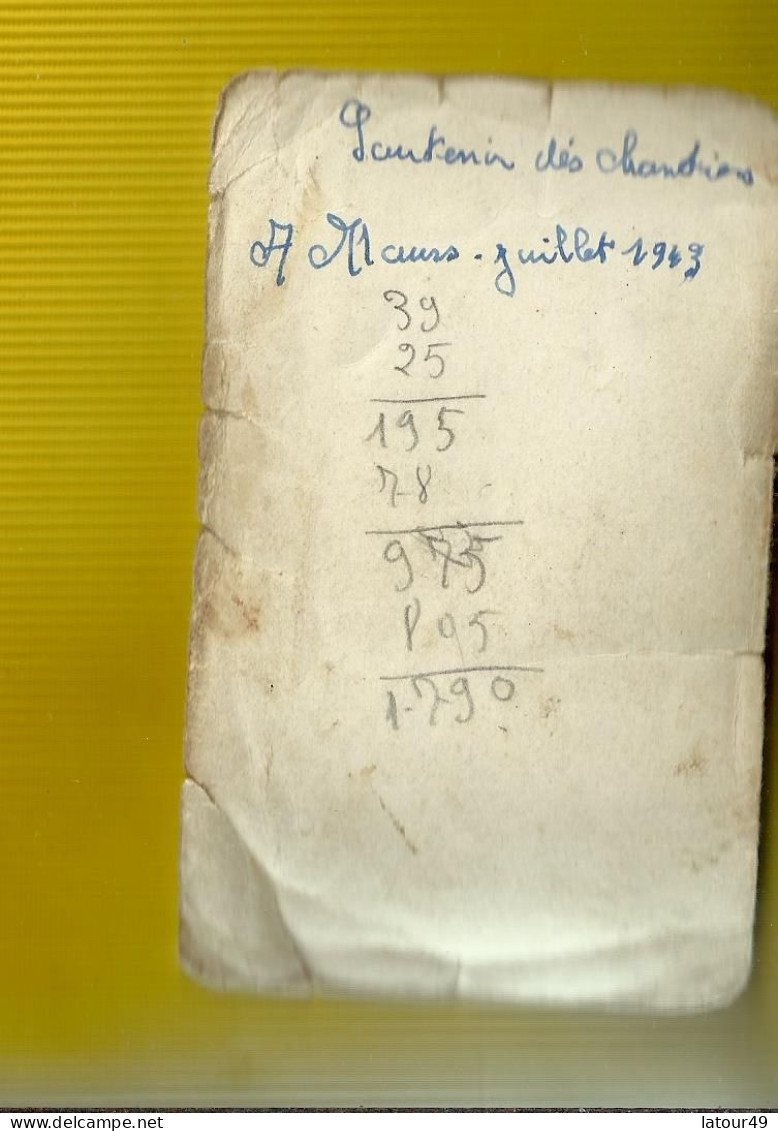 Soutenir dés chantiers
A Maurs. juillet 1943
39
25
195
78
975
895
1790
delcampe.net
latour49